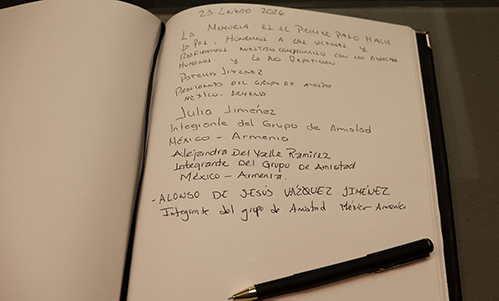 23 ENERO 2026
LA MEMORIA ES EL PRIMER PASO HACIA
LA PAZ, HONREMOS A LAS VICTIMAS Y
NUESTRO COMPROMISO CON LOS DERECHOS
HUMANOS Y LA NO REPETICION
JIMENEZ
PRESIDENTE DEL GRUPO DE AMISTAD
MÉXICO-
Julia Jiménez
Integrante del Grupo de Amistad
México - Armenia
Alejandra Del Valle Ramirez
Integrante Del Grupo de Amistad
México - Armenia.
- ALONSO DE JESÚS VÁZQUEZ JIMÉNEZ
Integrante del grupo de Amistad México-Armenia